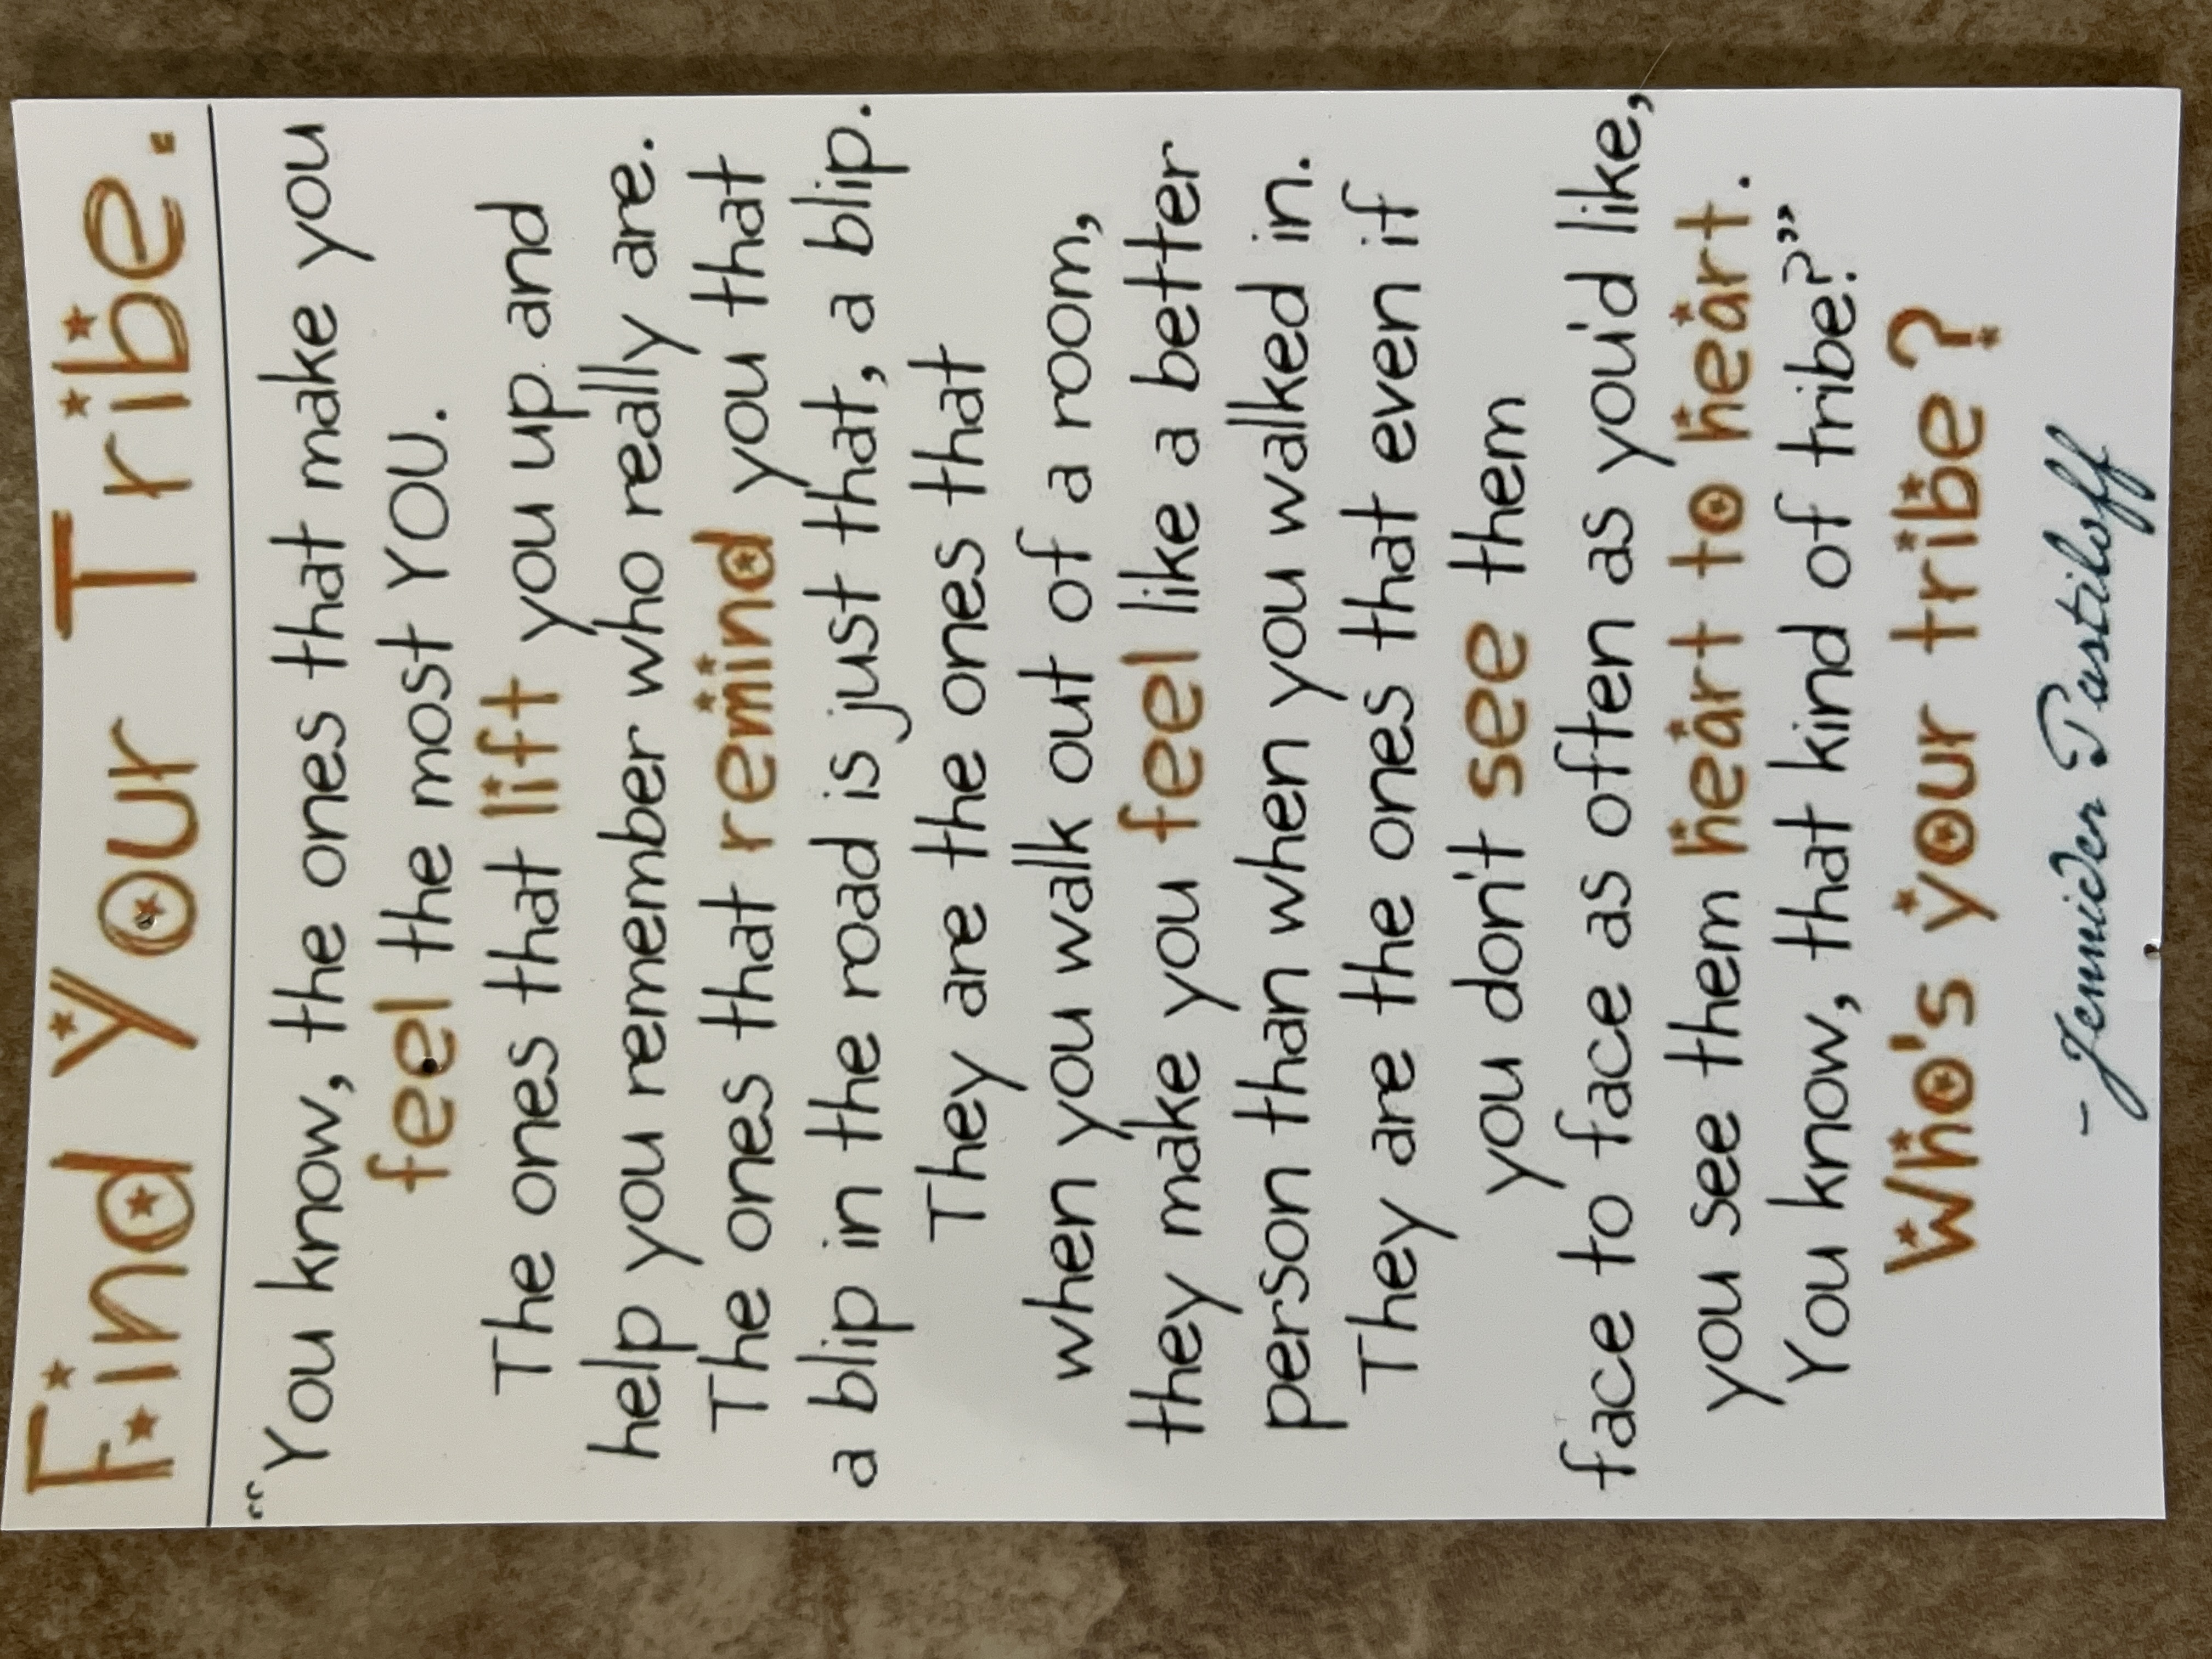 Find Your Tribe.
“You know, the ones that make you
feel the most YOU.
The ones that lift you up and
help you remember who really are.
The ones that remind you that
a blip in the road is just that, a blip.
They are the ones that
when you walk out of a room,
they make you feel like a better
person than when you walked in.
They are the ones that even if
you don't see them
face to face as often as you'd like,
you see them heart to heart.
You know, that kind of tribe?”
Who's your tribe?
- Jennider Pastiloff